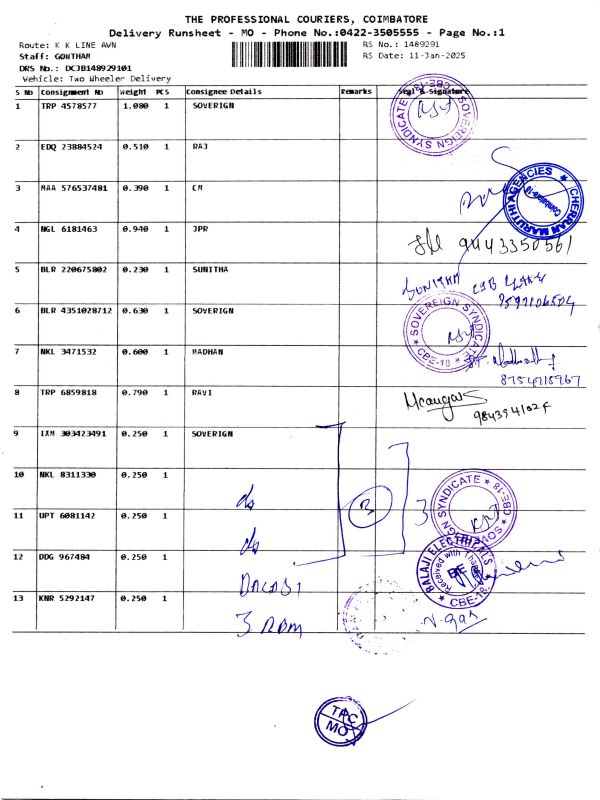 THE PROFESSIONAL COURIERS, COIMBATORE
Delivery Runsheet - MO - Phone No.:0422-3505555 - Page No.:1
Route: K K LINE AWN
RS No.: 1489291
Staff: GONTHAM
RS Date: 11-Jan-2025
DRS No.: DCJB148929101
Vehicle: Two Wheeler Delivery
S NO Consignment NO Weight PCS Consignee Details Remarks Seal & Signature
1 TRP 4578577 1.080 1 SOVERIGN
SOVEREIGN SYNDICATE CBE-18
2 EDQ 23884524 0.510 1 RAJ
3 MAA 576537481 0.390 1 CM
CHERRAN MARUTHI AGENCIES Coimbatore-18
4 NGL 6181463 0.940 1 JPR
9443350561
5 BLR 220675802 0.230 1 SUNITHA
SUNITHA
6 BLR 4351028712 0.630 1 SOVERIGN
SOVEREIGN SYNDICATE CBE-18
7 NKL 3471532 0.600 1 MADHAN
8754718967
8 TRP 6859818 0.790 1 RAVI
9 IXM 303423491 0.250 1 SOVERIGN
10 NKL 8311330 0.250 1 do
3
SOVEREIGN SYNDICATE CBE-18
11 UPT 6081142 0.250 1 do
12 DDG 967484 0.250 1
BALAJI ELECTRICALS Received with Thanks BE CBE-18
13 KNR 5292147 0.250 1
TPC
MO